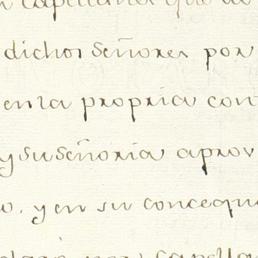 n capellanes que de
dichos Señores por
en la propria con
y su señoria aprov
o. y en su conceque